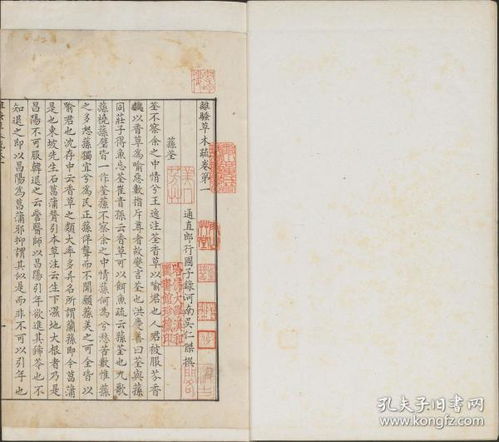 離騷草木疏卷第一
通直郎行國子錄河南吳仁傑撰
蓀荃
荃不察余之中情兮王逸注荃香草以喻君也人君被服芬香
故以香草為喻惡數指斥尊者故變言荃也洪慶善曰荃與蓀
同莊子得魚忘荃崔音孫云香草可以餌魚疏云蓀荃也九歌
蓀橈蓀壁皆一作荃蓀不察余之中情兮蓀何為兮愁苦數惟蓀
之多怒蓀獨宜兮為民正蓀佯聾而不聞願蓀美之可全皆以
喻君也沈存中云香草之類大率多異名所謂蘭蓀即今菖蒲
是也東坡先生石菖蒲贊引本草注云生下濕地大根者乃是
昌陽不可服韓退之云訾醫師以昌陽引年欲進其豨苓也不
知退之即以昌陽為菖蒲耶抑謂其似是而非不可以引年也
孔夫子旧书网
www.kongfz.com